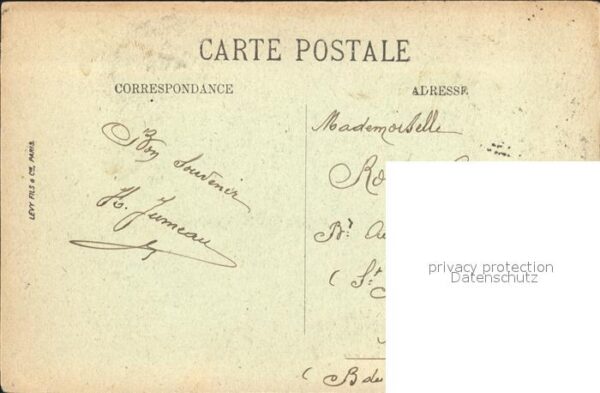 CARTE POSTALE
CORRESPONDANCE
ADRESSE
LEVY FILS & Cie, PARIS
Bon Souvenir
Jumeau
Mademoiselle
Bd
(St
(B de
privacy protection
Datenschutz